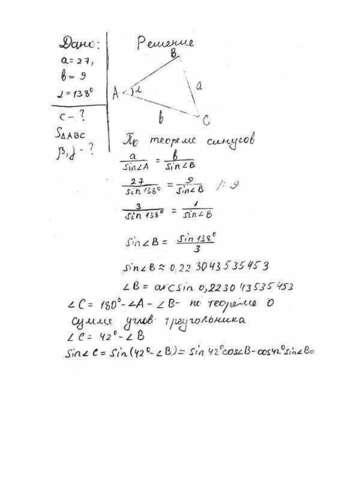 Дано:
a = 27,
b = 9
α = 138°
c - ?
S△ABC
β, γ - ?
Решение
B
A
α
a
b
C
По теореме синусов
a/sin∠A = b/sin∠B
27/sin 138° = 9/sin∠B |: 9
3/sin 138° = 1/sin∠B
sin∠B = sin 138°/3
sin∠B ≈ 0,223043535453
∠B = arcsin 0,223043535453
∠C = 180° - ∠A - ∠B - по теореме о
сумме углов треугольника
∠C = 42° - ∠B
sin∠C = sin(42° - ∠B) = sin 42° cos∠B - cos 42° sin∠B =